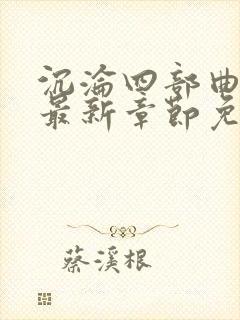 沉沦四部曲
最新章节免
蔡溪根